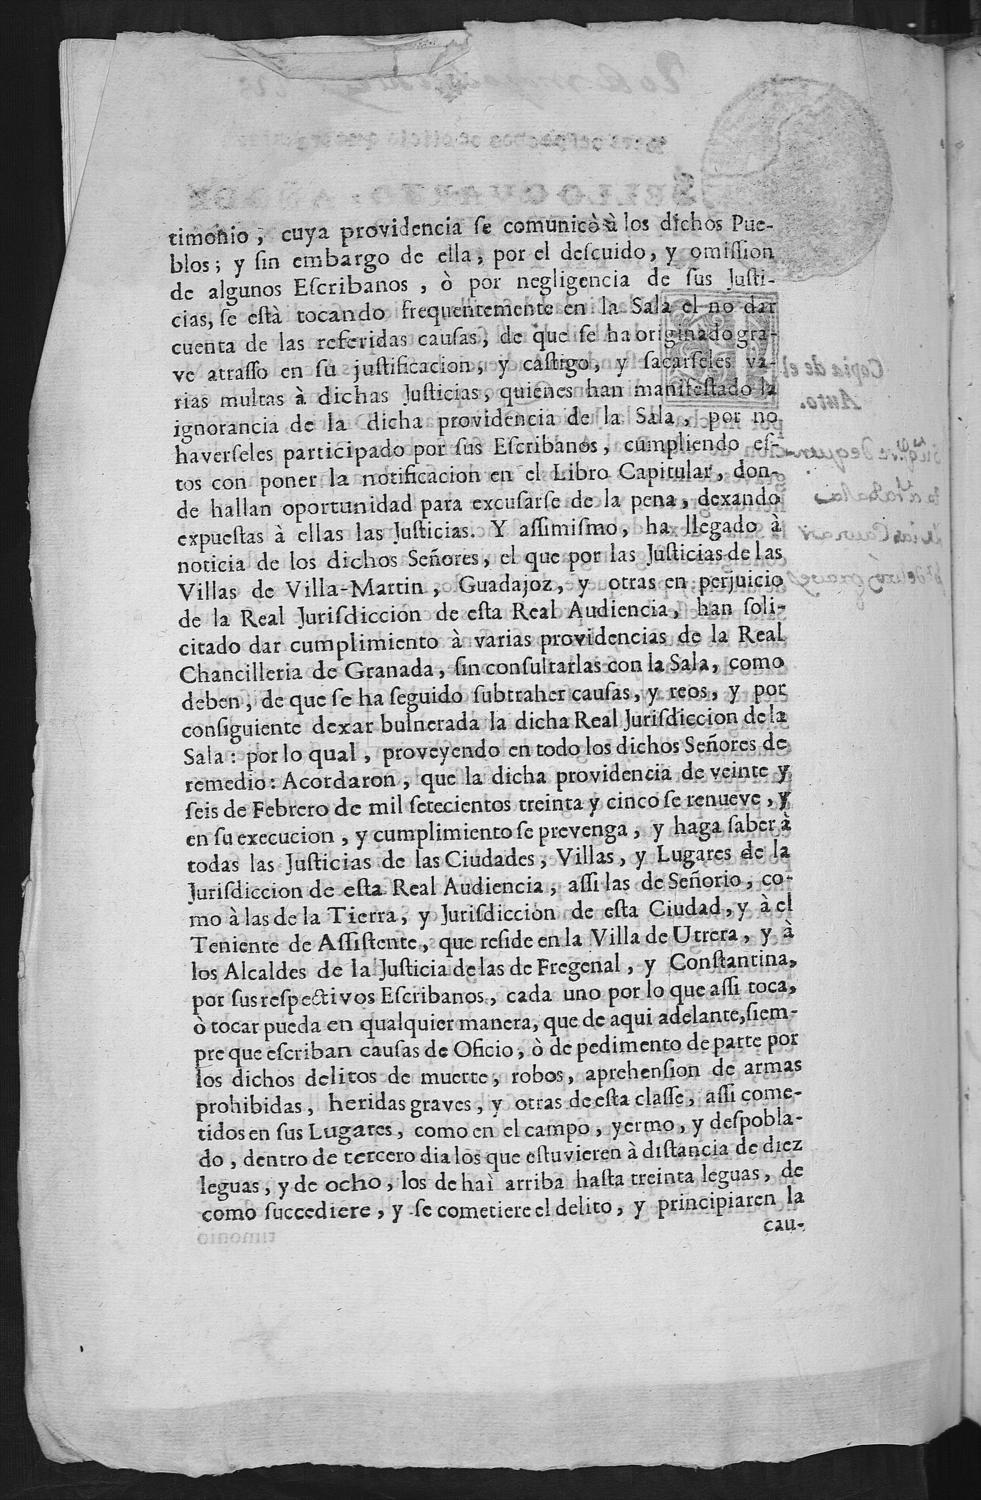 timonio, cuya providencia se comunicò à los dichos Pue-
blos; y sin embargo de ella, por el descuido, y omission
de algunos Escribanos, ò por negligencia de sus Justi-
cias, se està tocando frequentemente en la Sala el no dar
cuenta de las referidas causas, de que se ha originado gra-
ve atrasso en su justificacion, y castigo, y sacarseles va-
rias multas à dichas Justicias, quienes han manifestado la
ignorancia de la dicha providencia de la Sala, por no
haverseles participado por sus Escribanos, cumpliendo es-
tos con poner la notificacion en el Libro Capitular, don-
de hallan oportunidad para excusarse de la pena, dexando
expuestas à ellas las Justicias. Y assimismo, ha llegado à
noticia de los dichos Señores, el que por las Justicias de las
Villas de Villa-Martin, Guadajoz, y otras en perjuicio
de la Real Jurisdiccion de esta Real Audiencia, han soli-
citado dar cumplimiento à varias providencias de la Real
Chancilleria de Granada, sin consultarlas con la Sala, como
deben, de que se ha seguido subtraher causas, y reos, y por
consiguiente dexar bulnerada la dicha Real Jurisdiccion de la
Sala: por lo qual, proveyendo en todo los dichos Señores de
remedio: Acordaron, que la dicha providencia de veinte y
seis de Febrero de mil setecientos treinta y cinco se renueve, y
en su execucion, y cumplimiento se prevenga, y haga saber à
todas las Justicias de las Ciudades, Villas, y Lugares de la
Jurisdiccion de esta Real Audiencia, assi las de Señorio, co-
mo à las de la Tierra, y Jurisdicciòn de esta Ciudad, y à el
Teniente de Assistente, que reside en la Villa de Utrera, y à
los Alcaldes de la Justicia de las de Fregenal, y Constantina,
por sus respectivos Escribanos, cada uno por lo que assi toca,
ò tocar pueda en qualquier manera, que de aqui adelante, siem-
pre que escriban causas de Oficio, ò de pedimento de parte por
los dichos delitos de muerte, robos, aprehension de armas
prohibidas, heridas graves, y otras de esta classe, assi come-
tidos en sus Lugares, como en el campo, yermo, y despobla-
do, dentro de tercero dia los que estuvieren à distancia de diez
leguas, y de ocho, los de haì arriba hasta treinta leguas, de
como succediere, y se cometiere el delito, y principiaren la
cau-